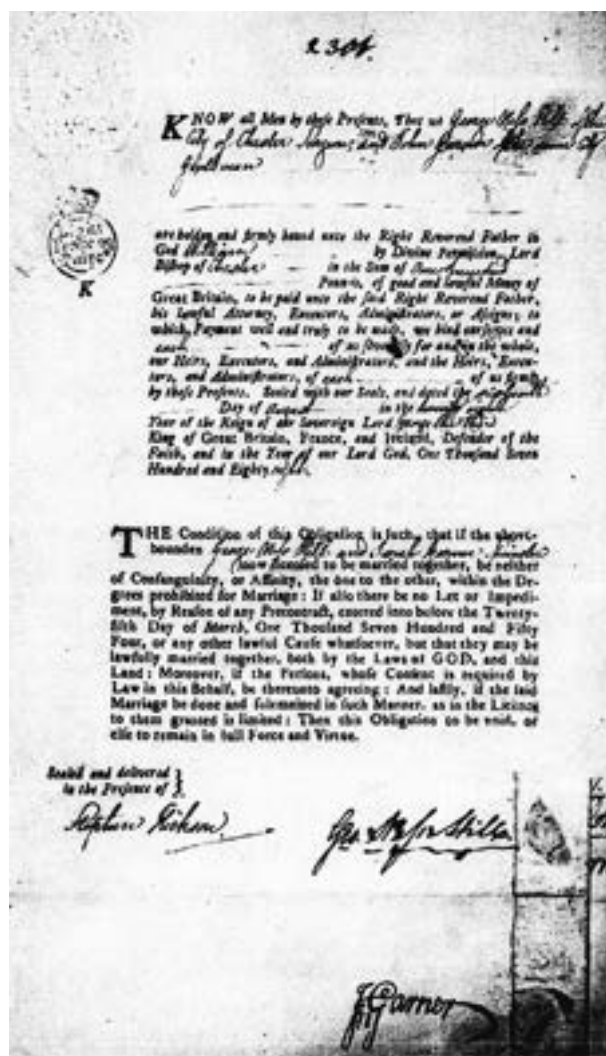 KNOW all Men by these Presents, That we George
City of Chester and John the same City
Gentleman
K
are holden and firmly bound unto the Right Reverend Father in
God William by Divine Permission, Lord
Bishop of Chester in the Sum of
Pounds, of good and lawful Money of
Great Britain, to be paid unto the said Right Reverend Father,
his lawful Attorney, Executors, Administrators, or Assigns; to
which Payment well and truly to be made, we bind ourselves and
each of us severally for and in the whole,
our Heirs, Executors, and Administrators, and the Heirs, Execu-
tors, and Administrators, of each of us firmly
by these Presents. Sealed with our Seals, and dated the
Day of August in the twenty eighth
Year of the Reign of our Sovereign Lord George the Third
King of Great Britain, France, and Ireland, Defender of the
Faith, and in the Year of our Lord God, One Thousand Seven
Hundred and Eighty eight.
THE Condition of this Obligation is such, that if the above-
bounden George and Sarah Spinster
now licensed to be married together, be neither
of Consanguinity, or Affinity, the one to the other, within the De-
grees prohibited for Marriage: If also there be no Let or Impedi-
ment, by Reason of any Precontract, entered into before the Twenty-
fifth Day of March, One Thousand Seven Hundred and Fifty
Four, or any other lawful Cause whatsoever, but that they may be
lawfully married together, both by the Laws of GOD, and this
Land: Moreover, if the Persons, whose Consent is required by
Law in this Behalf, be thereunto agreeing: And lastly, if the said
Marriage be done and solemnized in such Manner, as in the Licence
to them granted is limited: Then this Obligation to be void, or
else to remain in full Force and Virtue.
Sealed and delivered
in the Presence of
Stephen
Geo
J Garner